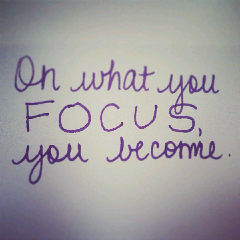 On what you
FOCUS,
you become.